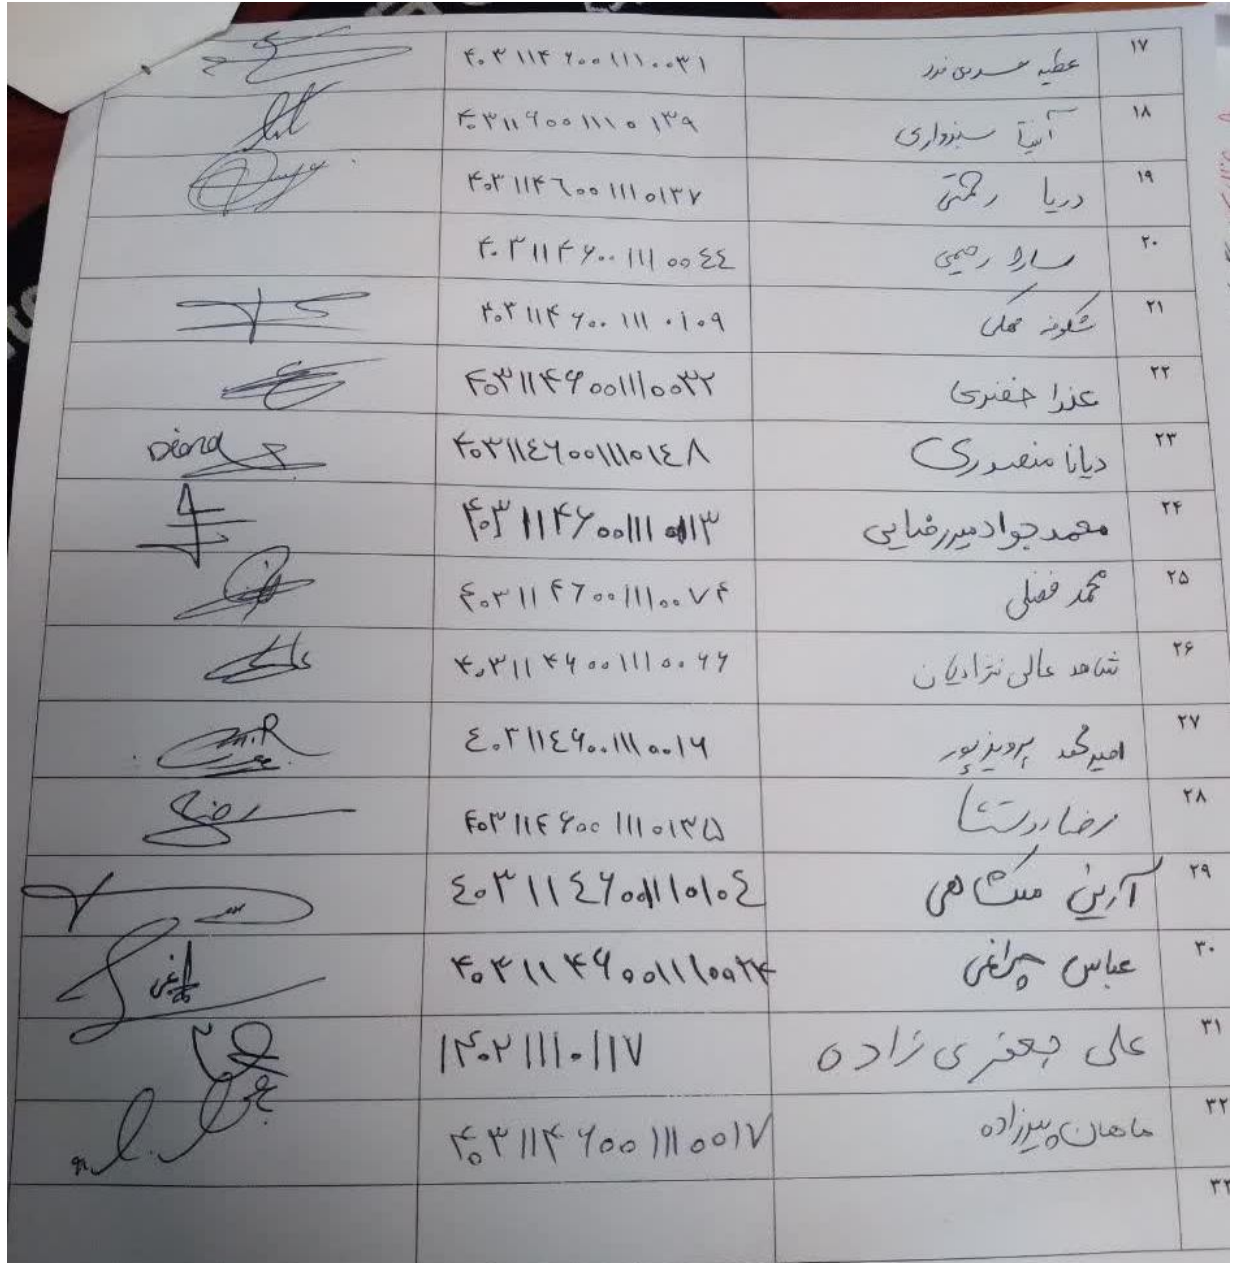 ۱۷ عطیه ۴۰۳۱۱۴۶۰۰۱۱۱۰۰۳۱
۱۸ آنیتا سبزواری ۴۰۳۱۱۶۰۰۱۱۱۰۱۳۹
۱۹ دریا رحمتی ۴۰۳۱۱۴۶۰۰۱۱۱۰۱۳۷
۲۰ سارا رحیمی ۴۰۳۱۱۴۶۰۰۱۱۱۰۰۴۴
۲۱ شکوفه ۴۰۳۱۱۴۶۰۰۱۱۱۰۱۰۹
۲۲ عذرا غضنفری ۴۰۳۱۱۴۶۰۰۱۱۱۰۰۳۲
۲۳ دیانا منصوری ۴۰۳۱۱۴۶۰۰۱۱۱۰۱۴۸ Diana
۲۴ محمدجواد میررضایی ۴۰۳۱۱۴۶۰۰۱۱۱۰۱۱۳
۲۵ محمد فضلی ۴۰۳۱۱۴۶۰۰۱۱۱۰۰۷۴
۲۶ شاهد عالی نژادیان ۴۰۳۱۱۴۶۰۰۱۱۱۰۰۶۶
۲۷ امیرمحمد پرویزپور ۴۰۳۱۱۴۶۰۰۱۱۱۰۰۱۶
۲۸ رضا ۴۰۳۱۱۴۶۰۰۱۱۱۰۱۳۵
۲۹ آرین ملکشاهی ۴۰۳۱۱۴۶۰۰۱۱۱۰۱۰۴
۳۰ عباس چراغی ۴۰۳۱۱۴۶۰۰۱۱۱۰۰۲۴
۳۱ علی جعفری زاده ۱۴۰۲۱۱۱۰۱۱۷
۳۲ ماهان پیرزاده ۴۰۳۱۱۴۶۰۰۱۱۱۰۰۱۷
۳۳